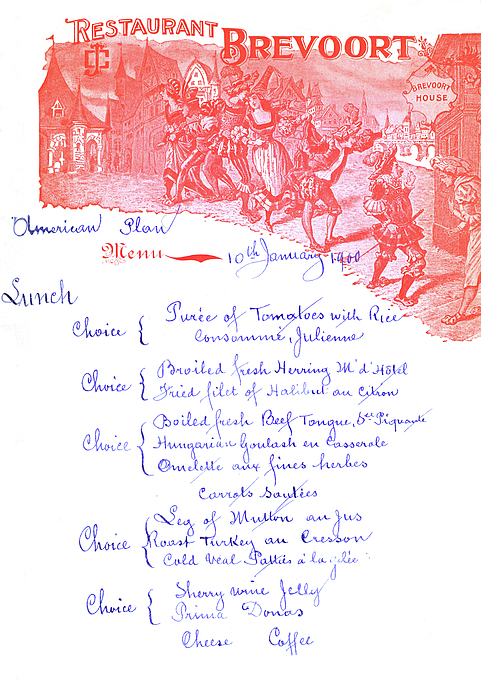 RESTAURANT
BREVOORT
JC
BREVOORT
HOUSE
American Plan
Menu
10th January 1900
Lunch
Choice { Purée of Tomatoes with Rice
Consommé, Julienne
Choice { Broiled fresh Herring M'd'Hôtel
Fried filet of Halibut au Citron
Choice { Boiled fresh Beef Tongue, Sce Piquante
Hungarian Goulash en Casserole
Omelette aux fines herbes
Carrots Sautées
Choice { Leg of Mutton au Jus
Roast Turkey au Cresson
Cold Veal Patties à la gelée
Choice { Sherry wine Jelly
Prima Donas
Cheese Coffee